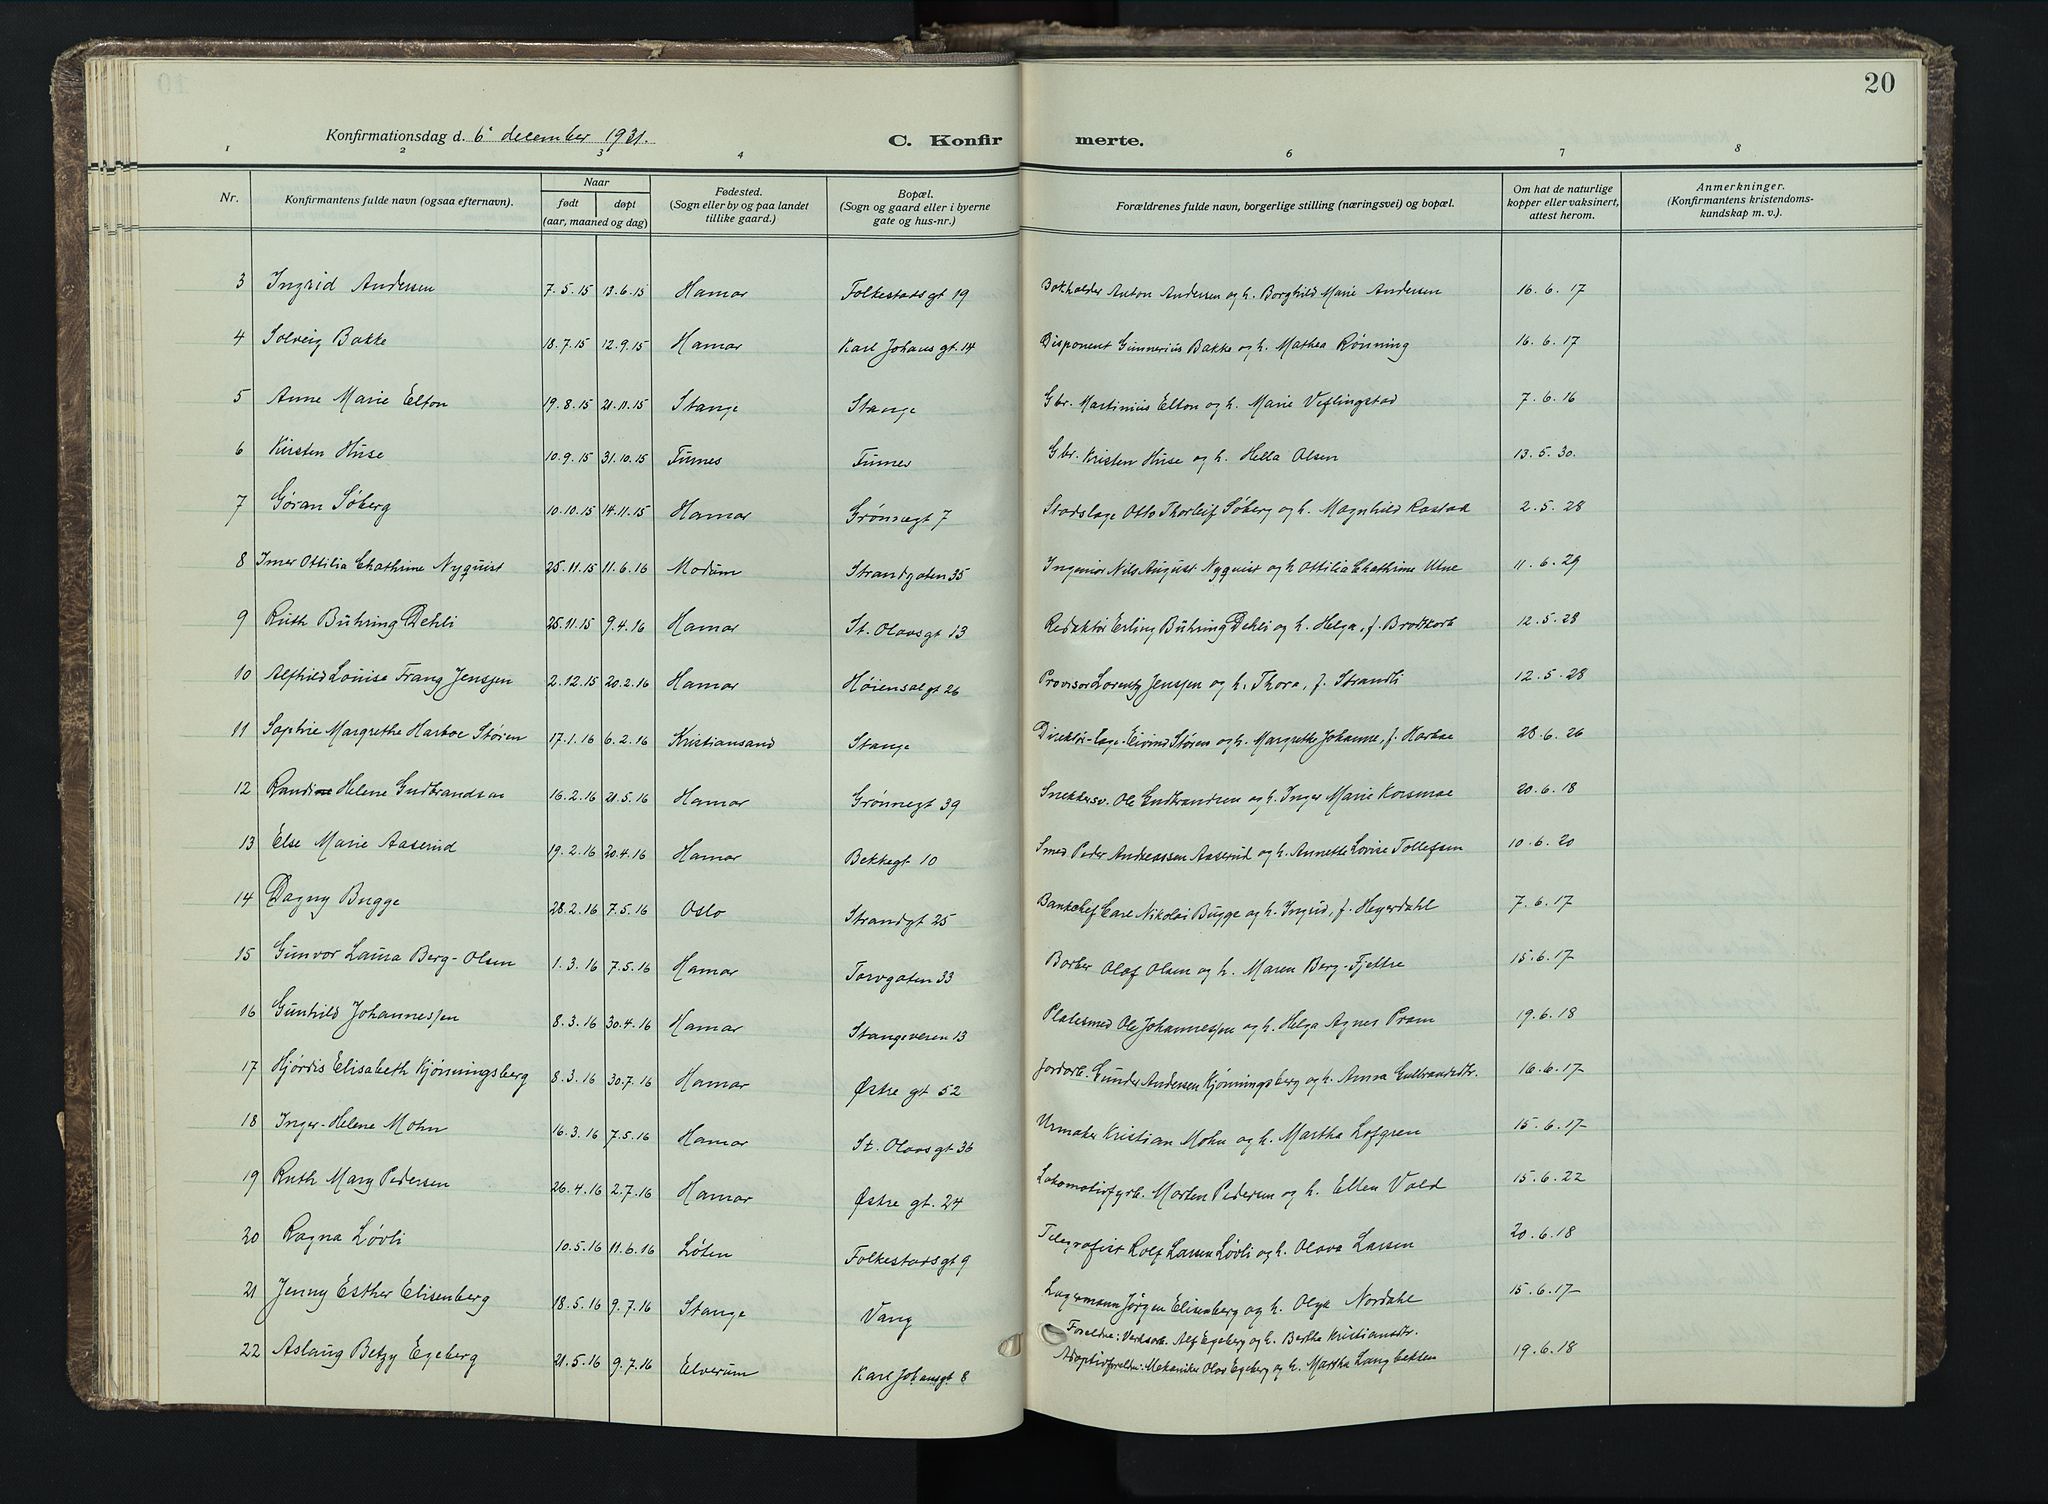 20
Konfirmationsdag d. 6' december 1931. C. Konfirmerte.
1 2 3 4 6 7 8
Nr. Konfirmantens fulde navn (ogsaa efternavn). Naar født døpt (aar, maaned og dag) Fødested. (Sogn eller by og paa landet tillike gaard.) Bopæl. (Sogn og gaard eller i byerne gate og hus-nr.) Forældrenes fulde navn, borgerlige stilling (næringsvei) og bopæl. Om hat de naturlige kopper eller vaksinert, attest herom. Anmerkninger. (Konfirmantens kristendomskundskap m. v.).
3 Ingrid Andersen 7.5.15 13.6.15 Hamar Folkestadsgt 19 Bokholder Anton Andersen og h. Borghild Marie Andersen 16.6.17
4 Solveig Bakke 18.7.15 12.9.15 Hamar Karl Johans gt. 14 Disponent Gunnerius Bakke og h. Mathea Rønning 16.6.17
5 Anne Marie Elton 19.8.15 21.11.15 Stange Stange Gbr. Martinius Elton og h. Marie Veflingstad 7.6.16
6 Kirsten Huse 10.9.15 31.10.15 Furnes Furnes Gbr. Kristen Huse og h. Hella Olsen 13.5.30
7 Gøran Søberg 10.10.15 14.11.15 Hamar Grønnegt 7 Stadslæge Otto Thorleif Søberg og h. Magnhild Rastad 2.5.28
8 Ottilia Chathrine Nyquist 25.11.15 11.6.16 Modum Strandgaten 35 Ingeniør Nils August Nyquist og h Ottilia Chathrine Ulne 11.6.29
9 Ruth Bühring Dehli 25.11.15 9.4.16 Hamar St. Olavsgt 13 Redaktør Erling Bühring Dehli og h. Helga, f. Brodtkorb 12.5.28
10 Alfhild Louise Frang Jenssen 2.12.15 20.2.16 Hamar Høiensalgt 26 Provisor Lorentz Jenssen og h. Thora, f. Strandli 12.5.28
11 Sophie Margrethe Harboe Støren 17.1.16 6.2.16 Kristiansand Stange Direktør-læge Eivind Støren og h. Margrethe Johanne, f. Harboe 28.6.26
12 Randine Helene Gudbrandsen 16.2.16 21.5.16 Hamar Grønnegt 39 Snekkersv. Ole Gudbrandsen og h. Inger Marie Korsmoe 20.6.18
13 Else Marie Aaserud 19.2.16 20.4.16 Hamar Bekkegt 10 Smed Peder Andreassen Aaserud og h. Annette Lovise Tollefsen 10.6.20
14 Dagny Bugge 28.2.16 7.5.16 Oslo Strandgt 25 Bankchef Carl Nikolai Bugge og h. Ingrid, f. Heyerdahl 7.6.17
15 Gunvor Laura Berg-Olsen 1.3.16 7.5.16 Hamar Torvgaten 33 Barber Olaf Olsen og h. Maren Berg-Fjeltre 15.6.17
16 Gunhild Johannessen 8.3.16 30.4.16 Hamar Stangeveien 13 Platesmed Ole Johannessen og h. Helga Agnes Pram 19.6.18
17 Hjørdis Elisabeth Kjønningsberg 8.3.16 30.7.16 Hamar Østre gt 52 Jordarb. Gunder Andersen Kjønningsberg og h. Anna Gulbrandsdtr. 16.6.17
18 Inger-Helene Mohn 16.3.16 7.5.16 Hamar St. Olavsgt 36 Urmaker Kristian Mohn og h. Martha Lofgren 15.6.17
19 Ruth Mary Pedersen 26.4.16 2.7.16 Hamar Østre gt. 24 Lokomotivfyrb. Morten Pedersen og h. Ellen Vold 15.6.22
20 Ragna Løvli 10.5.16 11.6.16 Løten Folkestadsgt 9 Telegrafist Rolf Larsen Løvli og h. Olava Larsen 20.6.18
21 Jenny Esther Elisenberg 18.5.16 9.7.16 Stange Vang Lagermann Jørgen Elisenberg og h. Olga Nordahl 15.6.17
22 Aslaug Betzy Egeberg 21.5.16 9.7.16 Elverum Karl Johansgt 8 Foreldre: Verksarb. Alf Egeberg og h. Berthe Kristiansdtr. 19.6.18
Adoptivforeldre: Mekaniker Olav Egeberg og h. Martha Langbakken